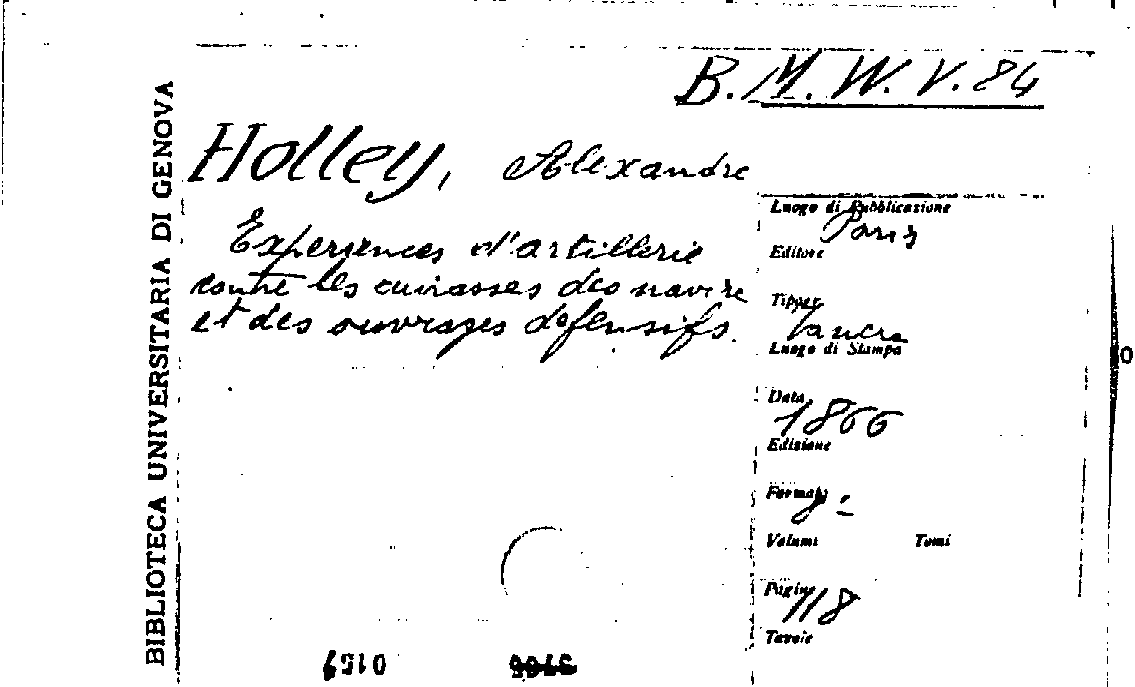 B.M.W.V.84
BIBLIOTECA UNIVERSITARIA DI GENOVA
Holley, Alexandre
Experiences d'artillerie
contre les cuirasses des navire
et des ouvrages defensifs.
Luogo di Pubblicazione
Paris
Editore
Tipogr.
Luogo di Stampa
Data
1866
Edizione
Formato
8º
Volumi Tomi
Pagine
118
Tavole